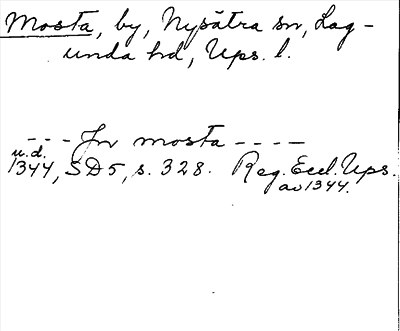 Mosta, by, Nysätra sn, Lag-
unda hd, Ups. l.
--- Jn mosta ----
u.d.
1344, SD5, s. 328. Reg. Eccl. Ups.
av 1344.